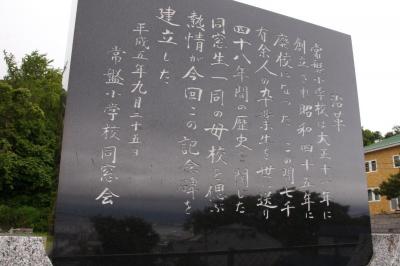 沿革
常盤小学校は大正十二年に
創立され昭和四十五年に
廃校になった この間七千
有余人の卒業生を世に送り
四十八年間の歴史を閉じた
同窓生一同の母校を偲ぶ
熱情が今回この記念碑を
建立した
平成五年九月二十五日
常盤小学校同窓会